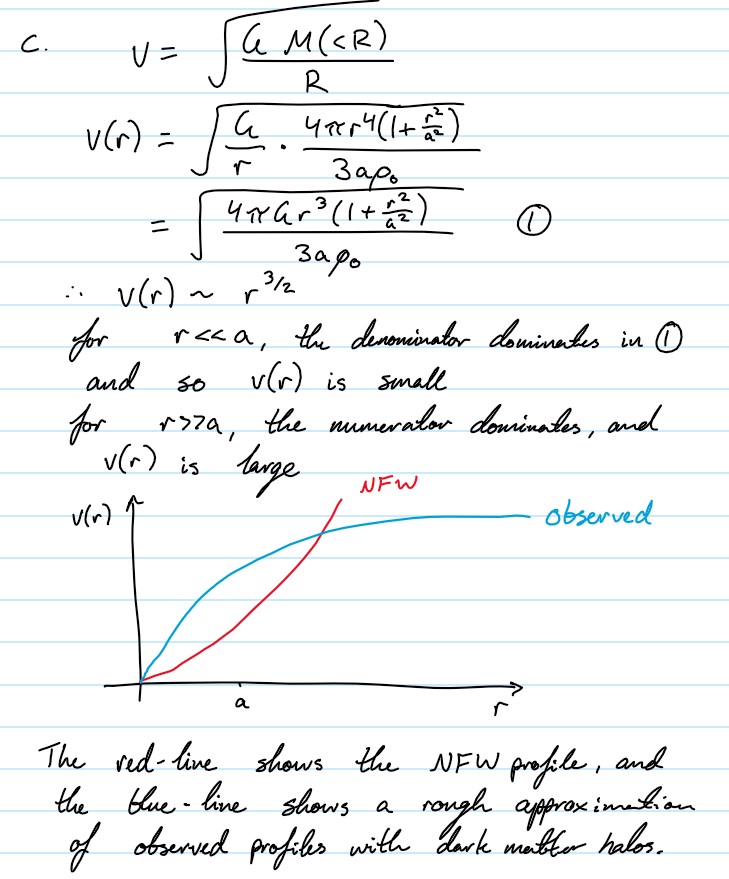 c. V = √(G M(<R) / R)
V(r) = √(G/r · 4πr⁴(1+r²/a²) / 3aρ₀)
= √(4πGr³(1+r²/a²) / 3aρ₀) ①
∴ V(r) ~ r^3/2
for r<<a, the denominator dominates in ①
and so v(r) is small
for r>>a, the numerator dominates, and
v(r) is large
NFW
v(r)
observed
a
r
The red-line shows the NFW profile, and
the blue-line shows a rough approximation
of observed profiles with dark matter halos.